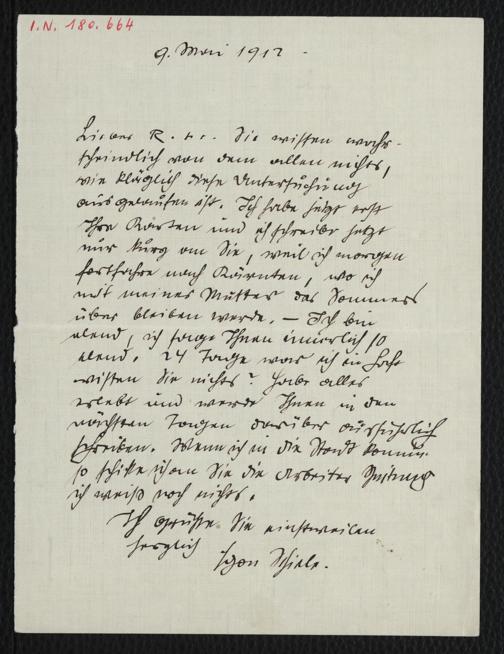 I.N. 180.664
9. Mai 1912 -
Lieber R. Sie wissen wahr-
scheindlich von dem allen nichts,
wie kläglich diese Untersuchung
ausgelaufen ist. Ich habe jetzt erst
Ihre Karten und ich schreibe jetzt
nur kurz an Sie, weil ich morgen
fortfahre nach Kärnten, wo ich
mit meiner Mutter das Sommers
über bleiben werde. — Ich bin
elend, ich sage Ihnen innerlich so
elend. 24 Tage war ich in Haft
wissen Sie nichts? habe alles
erlebt und werde Ihnen in den
nächsten Tagen darüber ausführlich
schreiben. Wenn ich in die Stadt komme
so schike ich an Sie die Arbeiter Zeitung
ich weiß noch nichts.
Ich grüsse Sie einstweilen
herzlich
Egon Schiele.